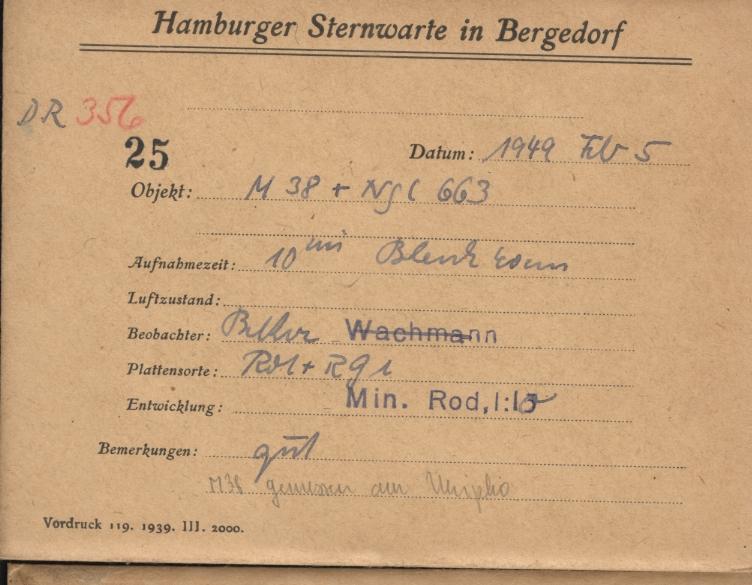 Hamburger Sternwarte in Bergedorf
DR 356
25 Datum: 1949 Feb 5
Objekt: M 38 + Ngc 663
Aufnahmezeit: 10 min Blende
Luftzustand:
Beobachter: Wachmann
Plattensorte: Rot + RG1
Entwicklung: Min. Rod, 1:
Bemerkungen: gut
M38 gemessen am
Vordruck 119. 1939. III. 2000.